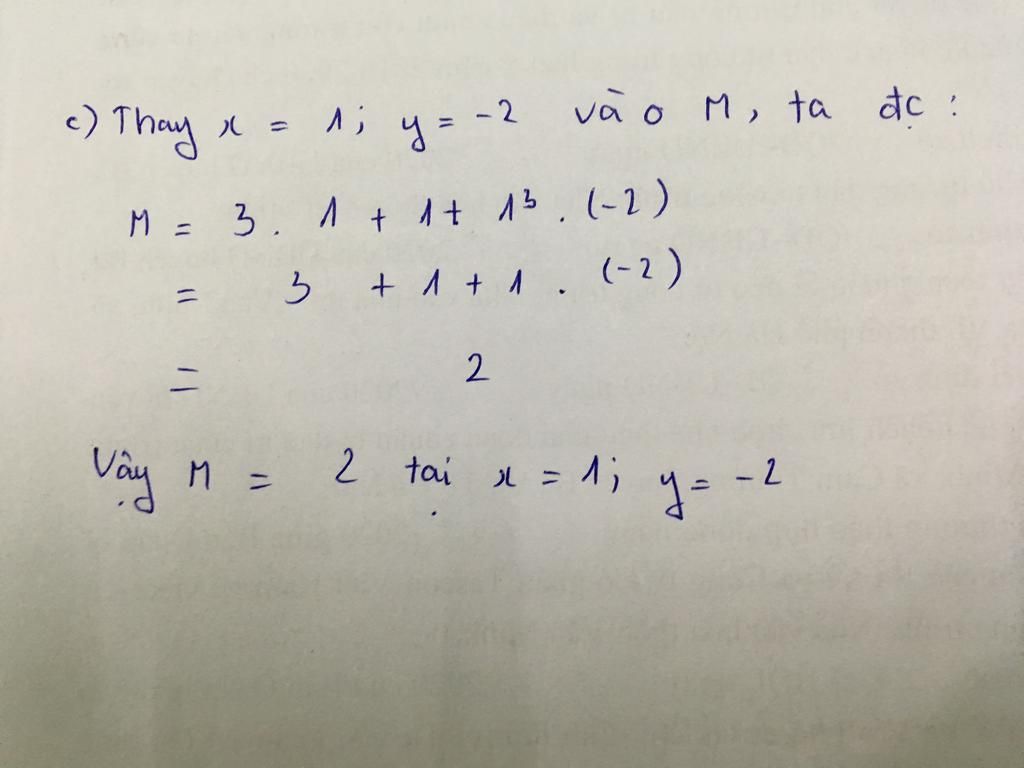 c) Thay x = 1; y = -2 vào M, ta đc:
M = 3 . 1 + 1 + 1³ . (-2)
= 3 + 1 + 1 . (-2)
= 2
Vậy M = 2 tại x = 1; y = -2